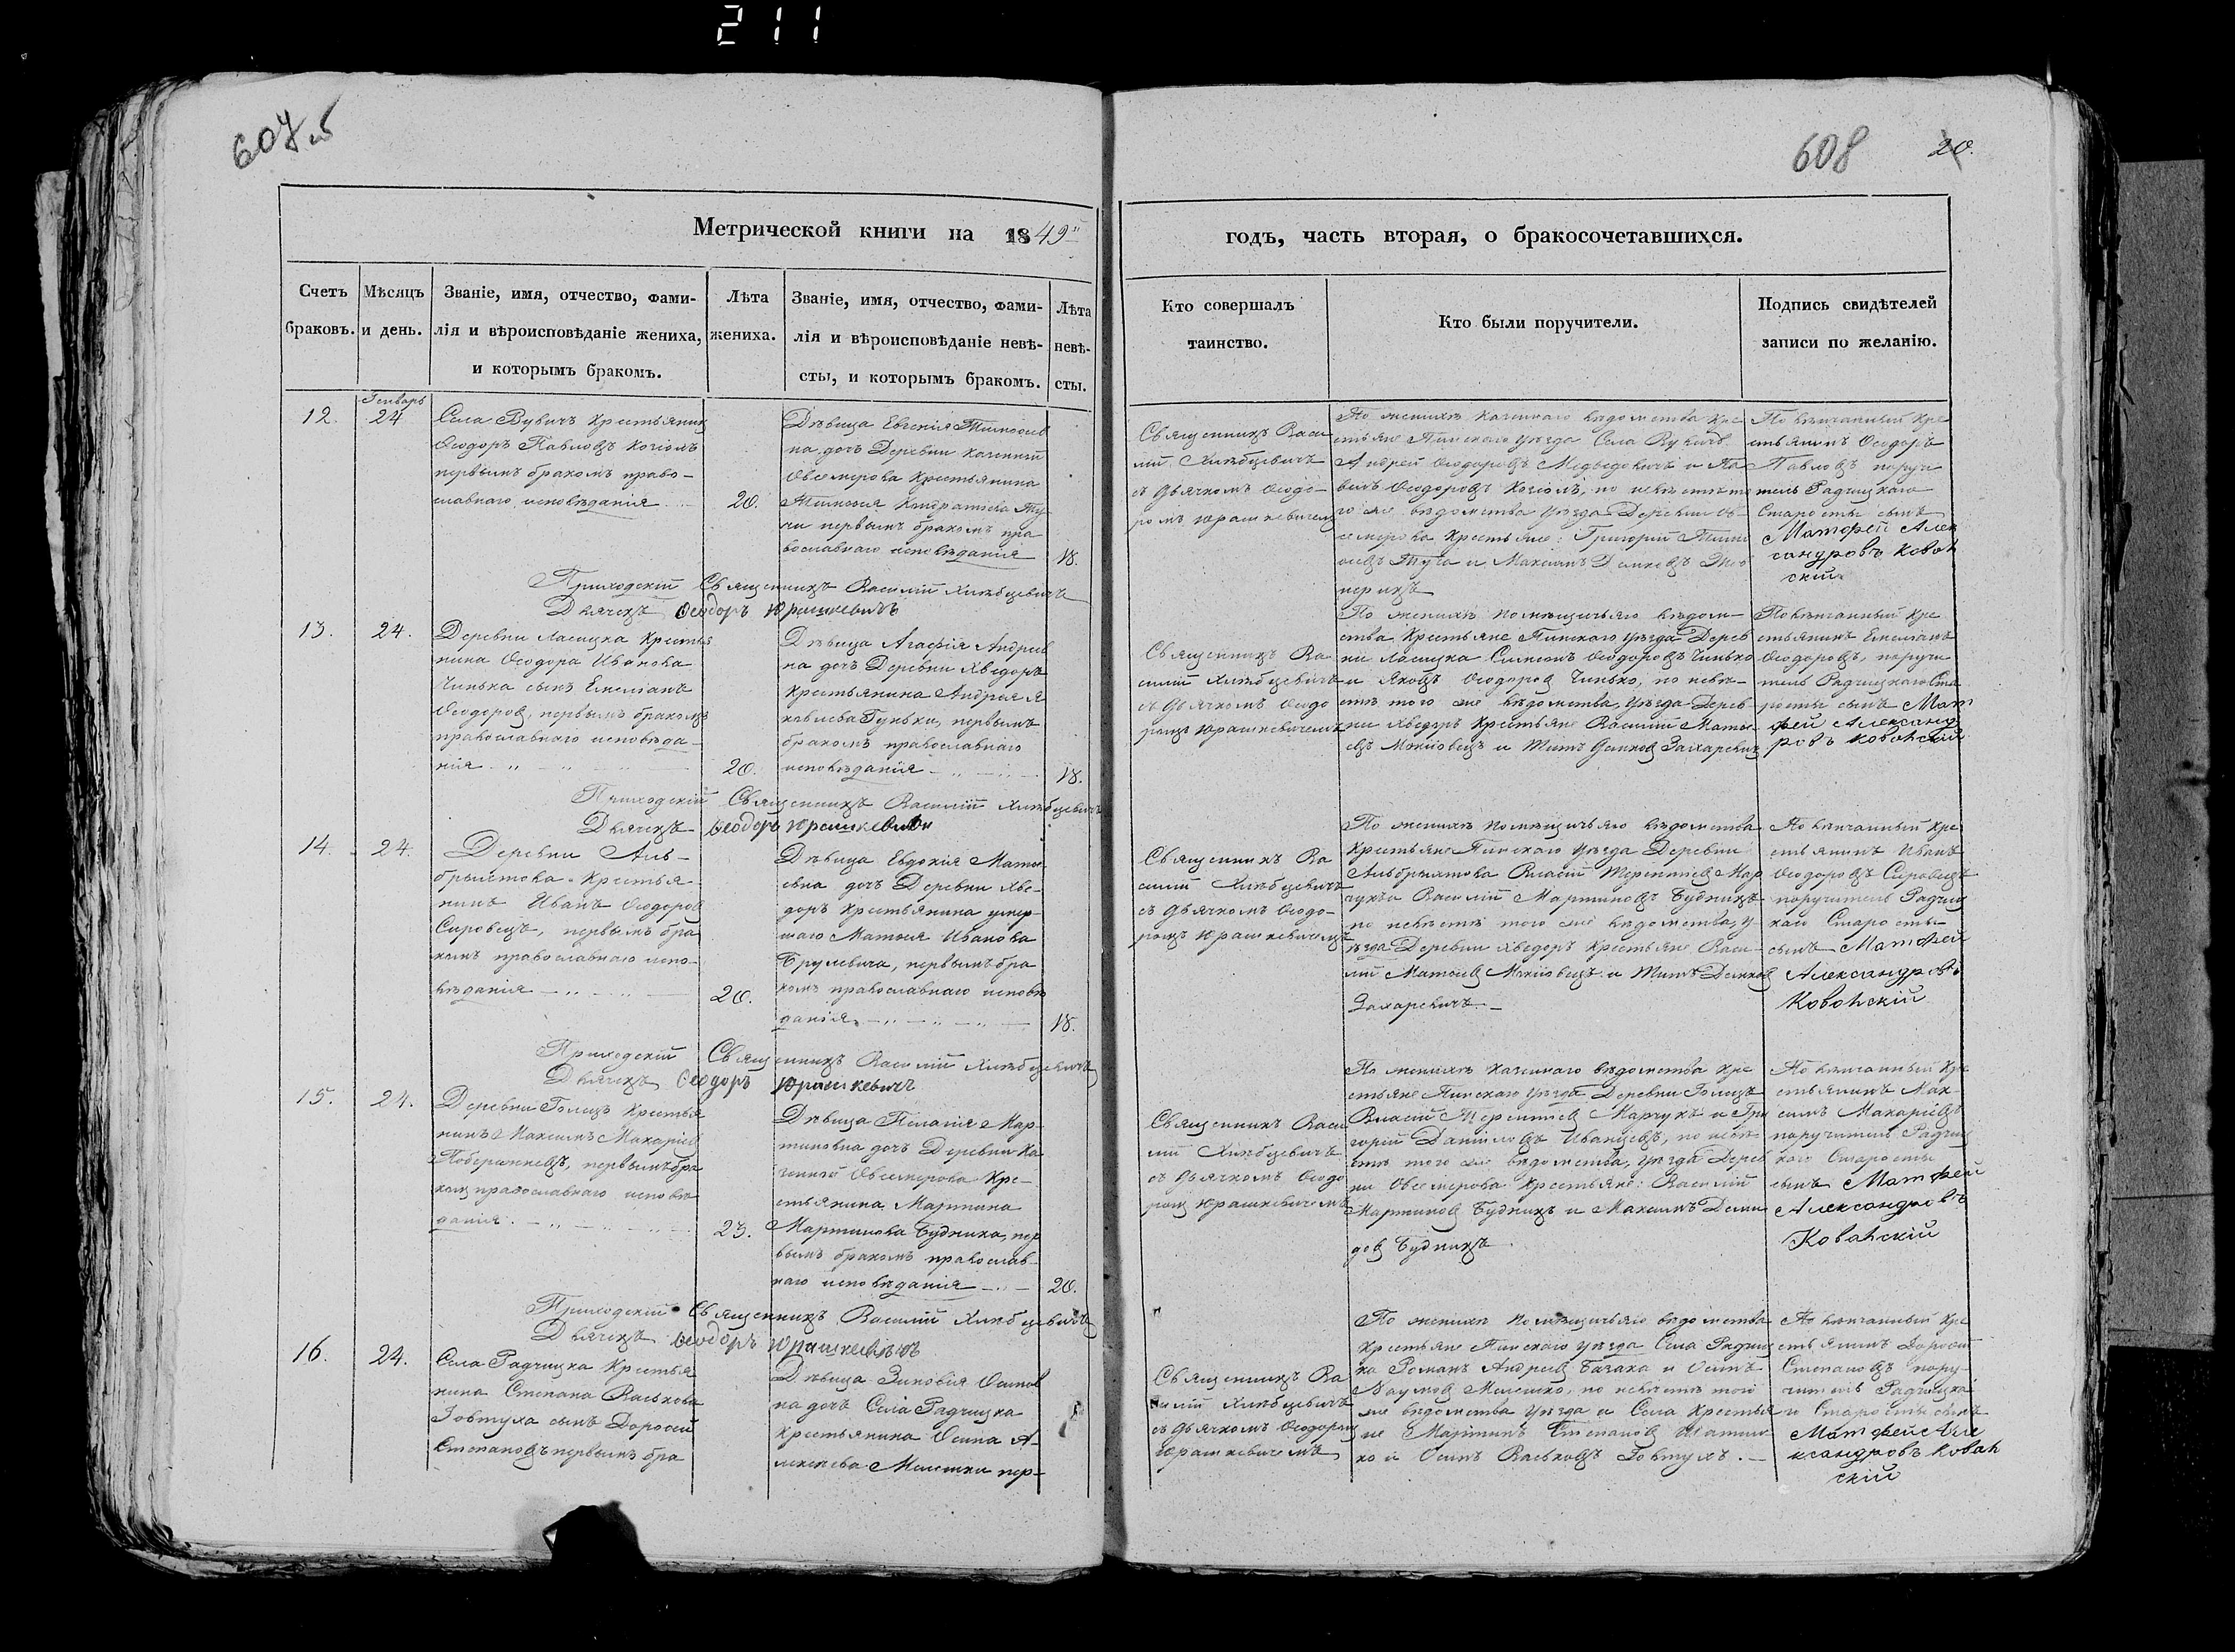 211
607 об
608 20.
Метрической книги на 1849й
годъ, часть вторая, о бракосочетавшихся.
Счетъ браковъ.
Мѣсяцъ и день.
Званіе, имя, отчество, фами-
лія и вѣроисповѣданіе жениха,
и которымъ бракомъ.
Лѣта
жениха.
Званіе, имя, отчество, фами-
лія и вѣроисповѣданіе невѣ-
сты, и которымъ бракомъ.
Лѣта
невѣ-
сты.
Кто совершалъ
таинство.
Кто были поручители.
Подпись свидѣтелей
записи по желанію.
12.
Генварь
24
Села Вувичъ Крестьянинъ
Ѳеодоръ Павловъ
первымъ бракомъ право-
славнаго исповѣданія
20.
Дѣвица Евгенія Тимоѳеев
на дочь Деревни Казенной
Овсемирова Крестьянина
Тимоѳея
первымъ бракомъ пра
вославнаго исповѣданія
18.
Священникъ Васи
лій Хлѣбцевичъ
съ Дьячкомъ Ѳеодо-
ромъ Юрашкевичемъ
По женихѣ Казеннаго вѣдомства Кре
стьяне Пинскаго уѣзда Села Вувичъ
Андрей Ѳеодоровъ Медведовичъ и Па
велъ Ѳеодоровъ по невѣстѣ то
го же вѣдомства уѣзда Деревни Ов-
семирова Крестьяне: Григорій Тимо
ѳеевъ и Максимъ
Повѣнчанный Кре
стьянинъ Ѳеодоръ
Павловъ поручи
тель Радчицкаго
Старосты сынъ
Матфей Алек
сандровъ Ковон
скій
Приходскій Священникъ Василій Хлѣбцевичъ
Дьячекъ Ѳеодоръ Юрашкевичъ
13.
24.
Деревни Ласицка Крестья
нина Ѳеодора Иванова
Чинька сынъ Емеліанъ
Ѳеодоровъ, первымъ бракомъ
православнаго исповѣда-
нія
20.
Дѣвица Агафія Андреев
на дочь Деревни Хведоръ
Крестьянина Андрея Я
ковлева Гуньки, первымъ
бракомъ православнаго
исповѣданія
18.
Священникъ Ва
силій Хлѣбцевичъ
съ Дьячкомъ Ѳеодо
ромъ Юрашкевичемъ
По женихѣ помѣщичьяго вѣдом-
ства Крестьяне Пинскаго уѣзда Дерев
ни Ласицка Симеонъ Ѳеодоровъ Чинько
и Яковъ Ѳеодоровъ Чинько, по невѣ-
стѣ того же вѣдомства, уѣзда Дерев-
ни Хведоръ Крестьяне Василій Матѳе-
евъ и Титъ Демковъ Захаревичъ
Повѣнчанный Кре
стьянинъ Емеліанъ
Ѳеодоровъ, поручи
тель Радчицкаго Ста
росты сынъ Мат
фей Александ
ровъ Ковонскій
Приходскій Священникъ Василій Хлѣбцевичъ
Дьячекъ Ѳеодоръ Юрашкевичъ
14.
24.
Деревни Аль-
брыхтова Крестья-
нинъ Иванъ Ѳеодоровъ
Сировецъ, первымъ бра
комъ православнаго испо-
вѣданія
20.
Дѣвица Евдокія Матѳе
евна дочь Деревни Хве-
доръ Крестьянина умер-
шаго Матѳея Иванова
Брулевича, первымъ бра
комъ православнаго исповѣ
данія
18.
Священникъ Ва
силій Хлѣбцевичъ
съ Дьячкомъ Ѳеодо-
ромъ Юрашкевичемъ
По женихѣ помѣщичьяго вѣдомства
Крестьяне Пинскаго уѣзда Деревни
Альбрыхтова Власій Терентіевъ Мар
чукъ и Василій Мартиновъ Будникъ
по невѣстѣ того же вѣдомства, у-
ѣзда Деревни Хведоръ Крестьяне Васи-
лій Матѳеевъ и Титъ Демковъ
Захаревичъ.
Повѣнчанный Кре
стьянинъ Иванъ
Ѳеодоровъ Сировецъ
поручитель Радчиц
каго Старосты
сынъ Матфей
Александровъ
Ковонскій
Приходскій Священникъ Василій Хлѣбцевичъ
Дьячекъ Ѳеодоръ Юрашкевичъ
15.
24.
Деревни Голецъ Крестья
нинъ Максимъ Макаріевъ
первымъ бра
комъ православнаго исповѣ
данія.
23.
Дѣвица Пелагія Мар-
тиновна дочь Деревни Ка
зенной Овсемирова Кре-
стьянина Мартина
Мартинова Будника, пер
вымъ бракомъ православ-
наго исповѣданія
20.
Священникъ Васи
лій Хлѣбцевичъ
съ Дьячкомъ Ѳеодо
ромъ Юрашкевичемъ
По женихѣ Казеннаго вѣдомства Кре
стьяне Пинскаго уѣзда Деревни Голецъ
Власій Терентіевъ Марчукъ и Гри
горій Даниловъ Иванцевъ, по невѣ
стѣ того же вѣдомства, уѣзда Дерев
ни Овсемирова Крестьяне: Василій
Мартиновъ Будникъ и Максимъ Деми
довъ Будникъ
Повѣнчанный Кре
стьянинъ Мак-
симъ Макаріевъ
поручитель Радчиц
каго Старосты
сынъ Матфей
Александровъ
Ковонскій
Приходскій Священникъ Василій Хлѣбцевичъ
Дьячекъ Ѳеодоръ Юрашкевичъ
16.
24.
Села Радчицка Крестья
нина Степана Васькова
Зовтула сынъ Дороѳей
Степановъ первымъ бра
Дѣвица Зиновія Осипов
на дочь Села Радчицка
Крестьянина Осипа А-
лексѣева Мелешки пер-
Священникъ Ва
силій Хлѣбцевичъ
съ Дьячкомъ Ѳеодоромъ
Юрашкевичемъ
По женихѣ помѣщичьяго вѣдомства
Крестьяне Пинскаго уѣзда Села Радчиц
ка Романъ Андреевъ и Осипъ
Наумовъ Мелешко, по невѣстѣ того
же вѣдомства уѣзда и Села Крестья
не Мартинъ Степановъ
ко и Осипъ Васьковъ Зовтулъ.
Повѣнчанный Кре
стьянинъ Дороѳей
Степановъ пору-
читель Радчицка
го Старосты сынъ
Матфей Але
ксандровъ Ковон
скій